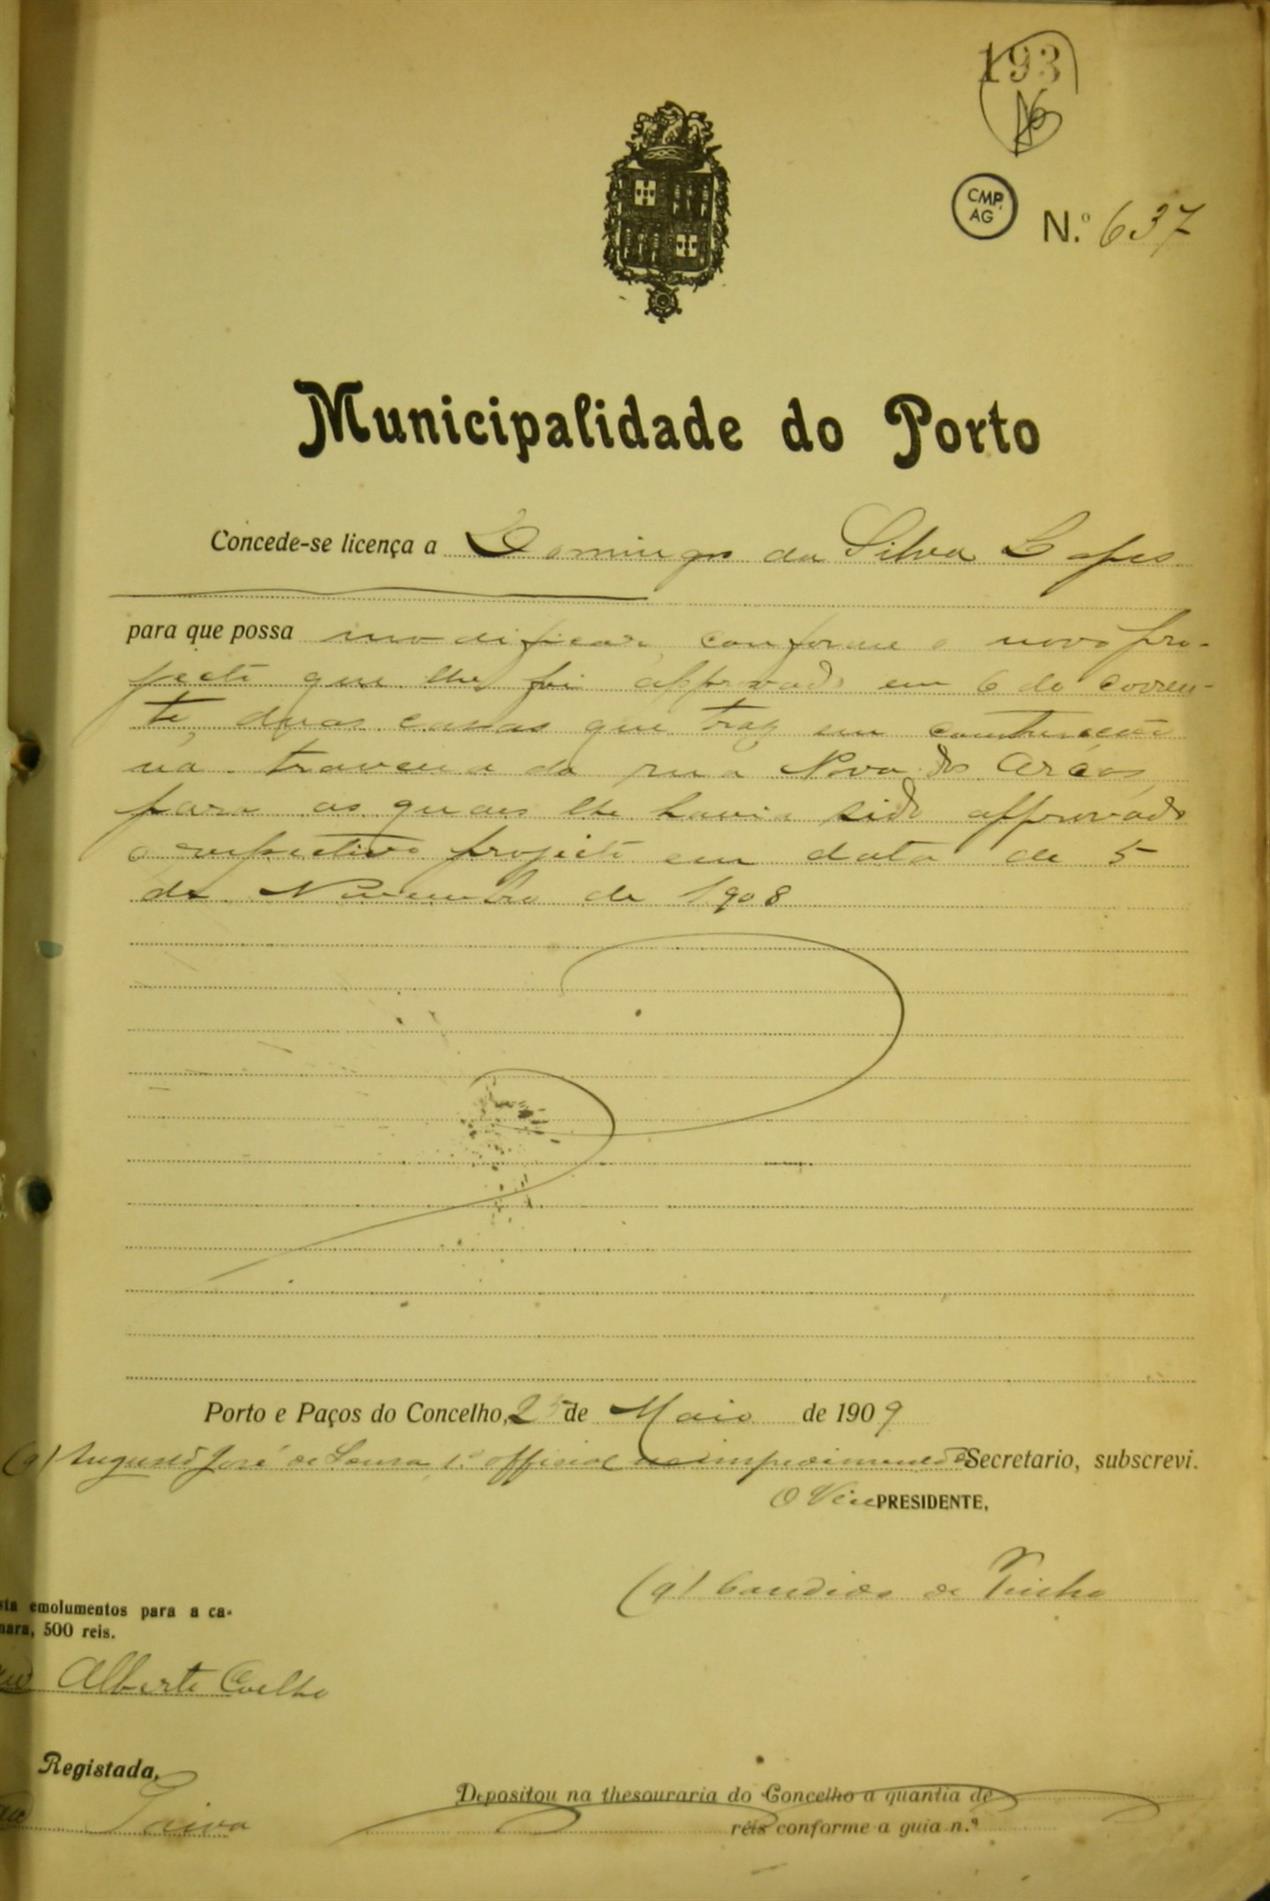 193
CMP
AG
N.º 637
Municipalidade do Porto
Concede-se licença a Domingos da Silva Lopes
para que possa modificar, conforme o novo pro-
jecto que lhe foi approvado em 6 do corren-
te, duas casas que traz em construcção
na travessa da rua Nova dos Arcos,
para as quaes lhe havia sido approvado
o respectivo projecto em data de 5
de Novembro de 1908
Porto e Paços do Concelho, 25 de Maio de 1909
(a) Augusto José de Sousa, 1.º official no impedimento do Secretario, subscrevi.
O Vice PRESIDENTE,
(a) Candido de Pinho
sta emolumentos para a ca-
mara, 500 reis.
Alberto Coelho
Registada,
Paiva
Depositou na thesouraria do Concelho a quantia de
réis conforme a guia n.º